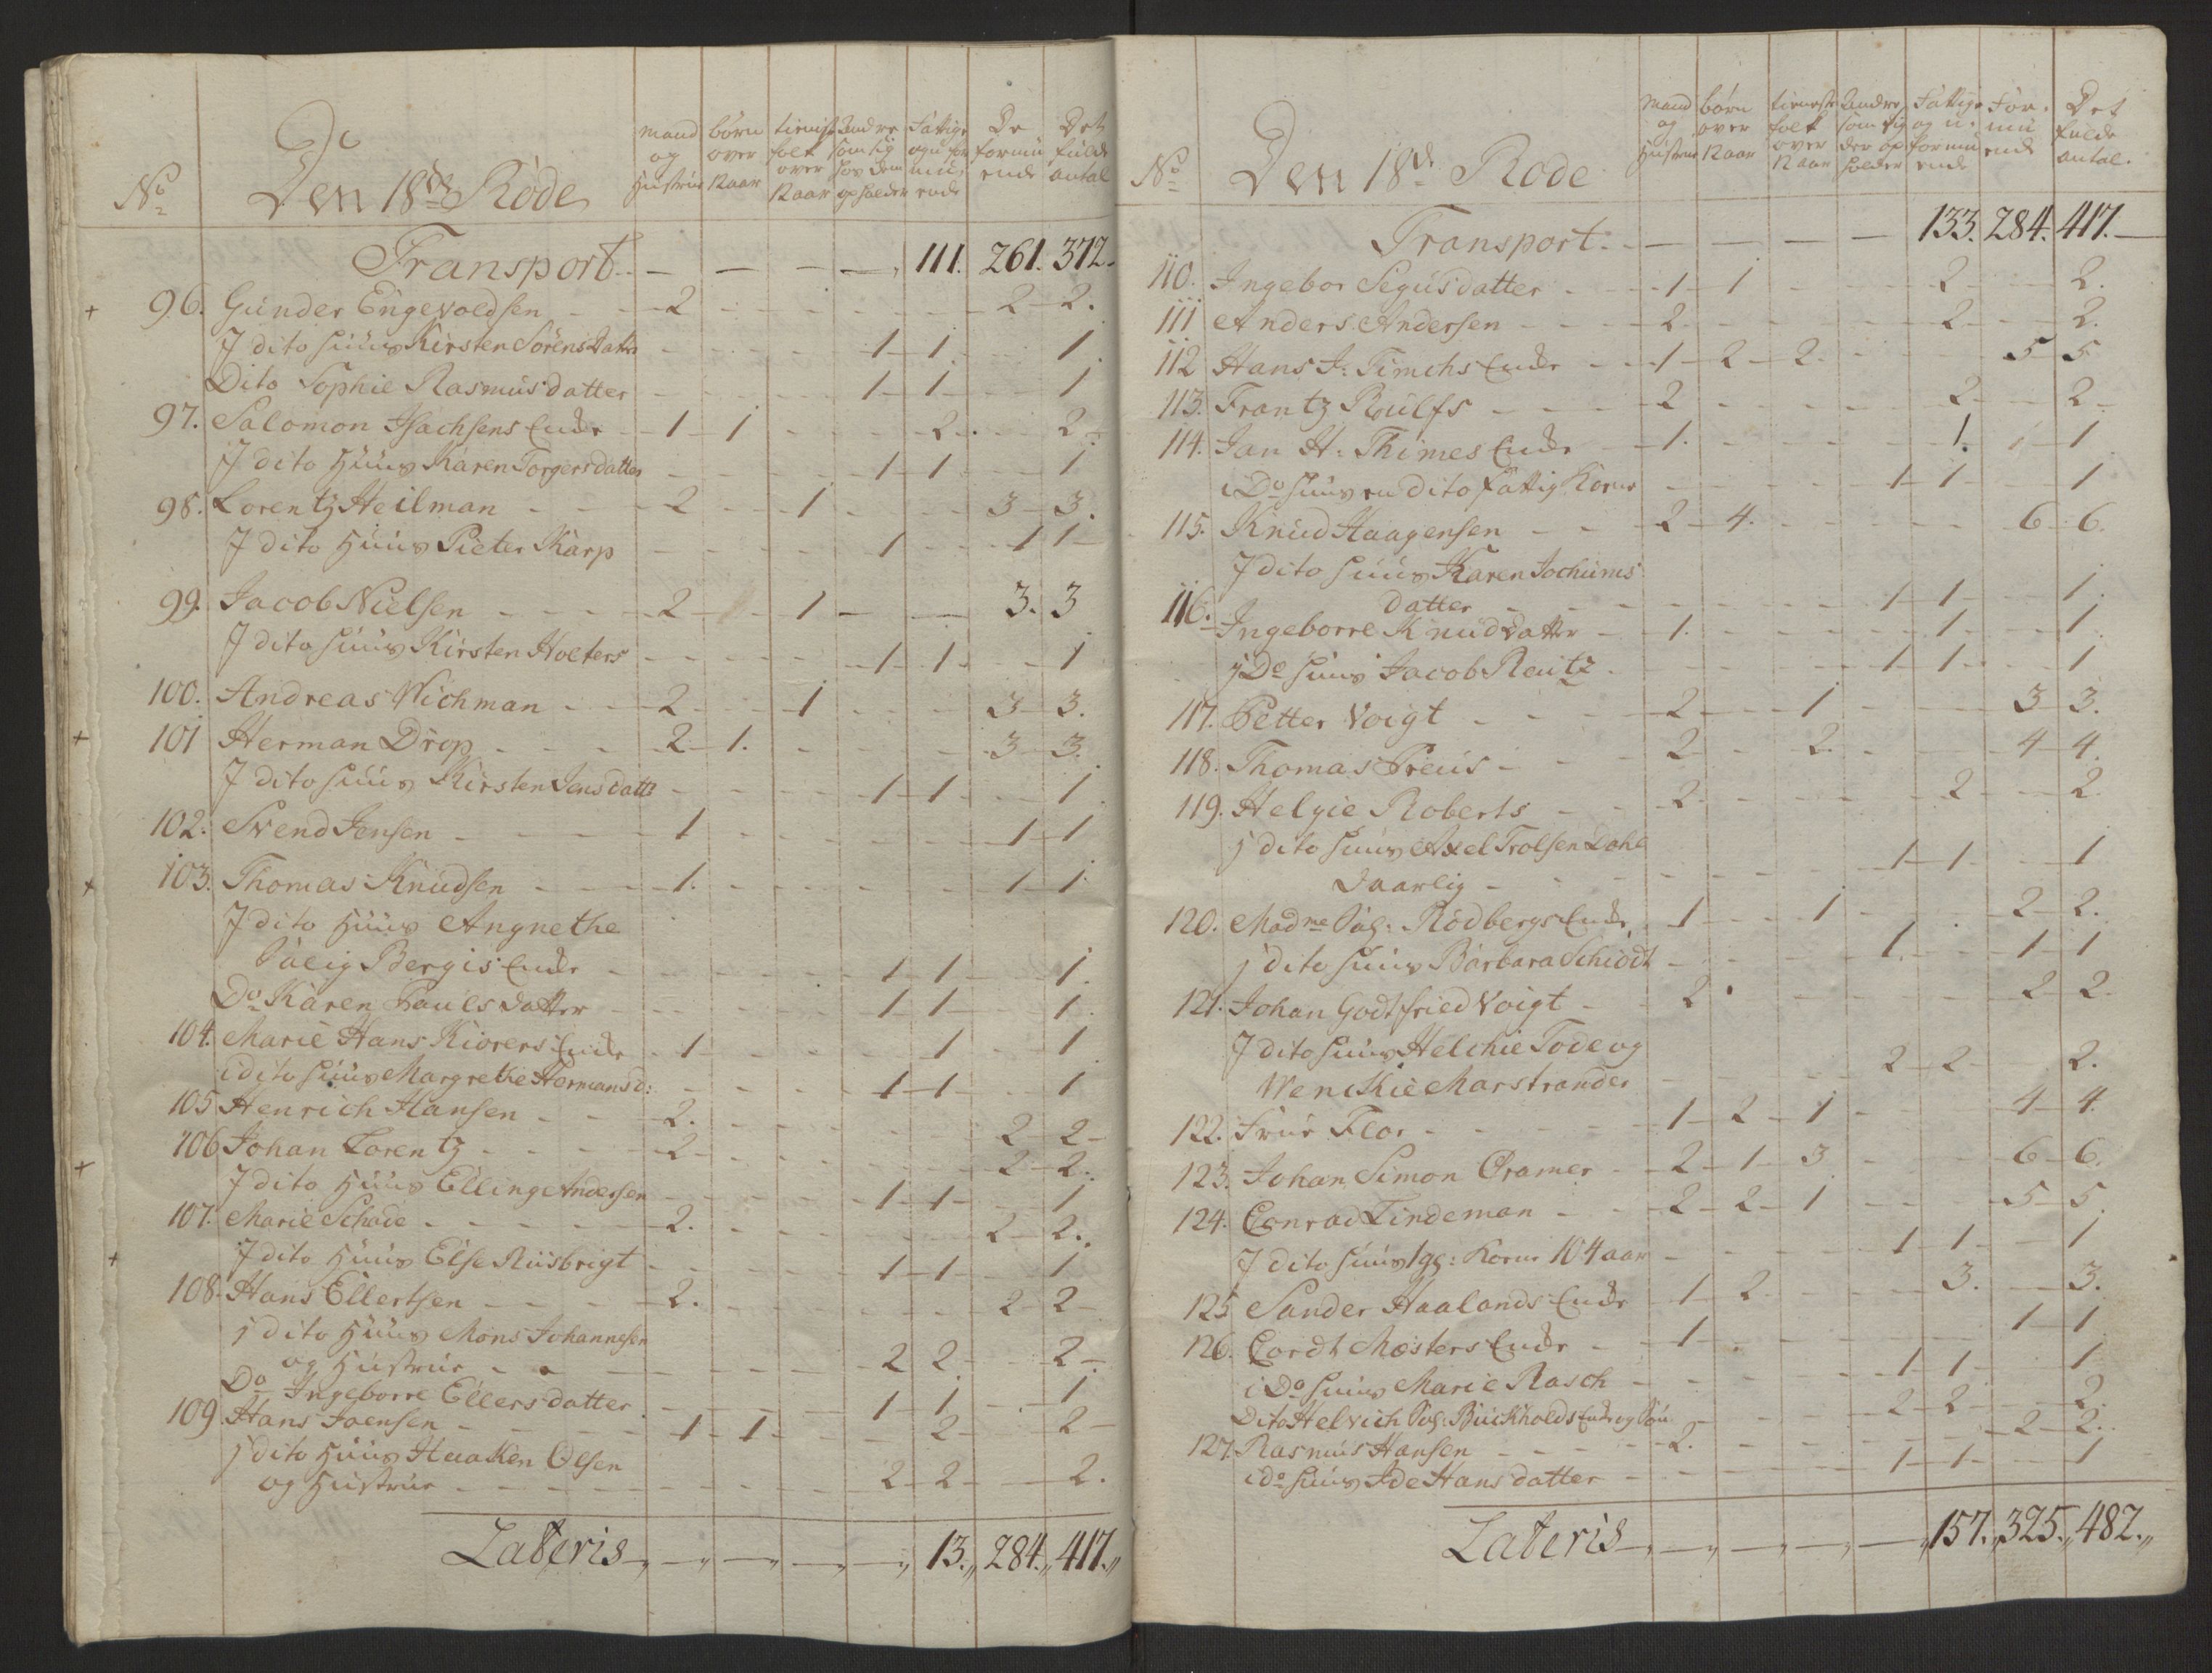 No Den 18de Rode mand og Hustrue børn over 12 aar tieniste folk over 12 aar Andre som sig hos dem opholder Fattige og u for mu, ende De formu ende Det fulde antal
Transport - - - - 111. 261. 372.
+ 96. Gunder Engevoldsen - 2 - - - - 2 - 2.
J dito huus Kirsten Sørensdatter - 1 - 1 - 1.
Dito Sophie Rasmusdatter - 1 - 1 - 1
97. Salomon Isachsens Encke - 1 - 1 - - 2. - 2.
J dito Huus Karen Torgersdatter - 1 - 1 - 1
98. Lorentz Heilman - 2 - 1 - - 3 - 3.
J dito Huus Pieter Karp - 1 - 1 1
99. Jacob Nielsen - 2 - 1 - - 3. 3
J dito huus Kirsten Holters - 1 - 1 - 1
100. Andreas Wichman - 2 - 1 - 3 - 3.
+ 101 Herman Drop - 2 - 1. - 3 - 3.
J dito huus Kirsten Jensdattr - 1 - 1 - 1.
102. Svend Jensen - 1 - - 1 - 1
+ 103. Thomas Knudsen - 1. - - 1 - 1.
J dito Huus Angnethe
Salig Bergis Encke - 1 - 1 - 1.
Do Karen Pauls datter - 1 - 1 - 1.
104. Marie Hans Kiørers Encke - 1 - - 1 - 1.
i dito huus Margrethe Hermansd: - 1 - 1 - 1
105 Henrich Hansen - 2. - - 2 - 2 -
+ 106 Johan Lorentz - 2 - - 2 - 2.
J dito Huus Elling Andersen - 1 - 1 - 1
107. Marie Schade - 2. - - 2 - 2.
+ J dito Huus Else Riisbrigt - 1 - 1 - 1
108. Hans Ellertsen - 2. - - 2 - 2 -
j dito Huus Mons Johannesen
og Hustrue - 2 2 - 2 -
Do Ingeborre Ellersdatter - 1 - 1 - 1
109. Hans Joensen - 1 - 1 - - 2 - 2 -
j dito Huus Haaken Olsen
og Hustrue - 2 - 2 - 2.
Lateris - - - - 13. 284. 417.
No Den 18de Rode mand og Hustrue børn over 12 aar tieneste folk over 12 aar Andre som sig der op holder Fattige og u. formu ende For. mu ende Det fulde antal.
Transport. - - - - 133. 284. 417. -
110. Ingebor Segusdatter - 1 - 1 - - 2 - 2.
111 Anders Andersen - 2. - - 2 - 2.
112 Hans J: Timchs Encke - 1 - 2 - 2. - 5 5
113. Frantz Rulfs - 2 - - 2 - 2 -
114. Jan H: Thimes Encke - 1. - - 1. - 1
i Do huus en dito fattig Kone - 1 - 1 - 1
115. Knud Haagensen - 2 - 4. - - 6 - 6.
J dito huus Karen Jochums
datter - 1 - 1 - 1.
116. Ingeborre Knudsdatter - 1. - - 1 - 1.
j Do huus Jacob Reutz - 1 - 1 - 1
117. Petter Voigt - 2 - 1 - - 3 3.
118. Thomas Preus - 2 - 2. - - 4 - 4.
119. Helgie Roberts - 2 - - 2 - 2.
j dito huus Axel Trolsen Dahl
daarlig - 1 - 1 - 1
120. Madme Sal: Rødbergs Encke - 1 - 1 - 2 - 2.
j dito huus Barbara Schiødt - 1. - 1 - 1
121. Johan Godtfried Voigt - 2. - - 2 - 2.
J dito huus Helchie Tode og
Wenckie Marstrander - 2 - 2 - 2.
122. Frue Flor - 1 - 2 - 1 - - 4 - 4.
123. Johan Simon Cramer - 2 - 1 - 3. - 6 - 6.
124. Conrad Lindeman - 2 - 2 - 1 - - 5 - 5.
J dito huus 1 gl: Kone 104 aar - 1 - 1 - 1
125 Sander Haalands Encke - 1 - 2 - - 3. - 3.
126. Cordt Mæsters Encke - 1 - - 1 - 1
i Do huus Marie Rasch - 1 - 1 - 1
Dito Helvich Sal: Buckholds Encke og Søn - 2 - 2 - 2.
127. Rasmus Hansen - 2. - - 2 - 2.
i do huus Ide Hansdatter - 1 - 1 - 1
Lateris - - - - 157. 325. 482.